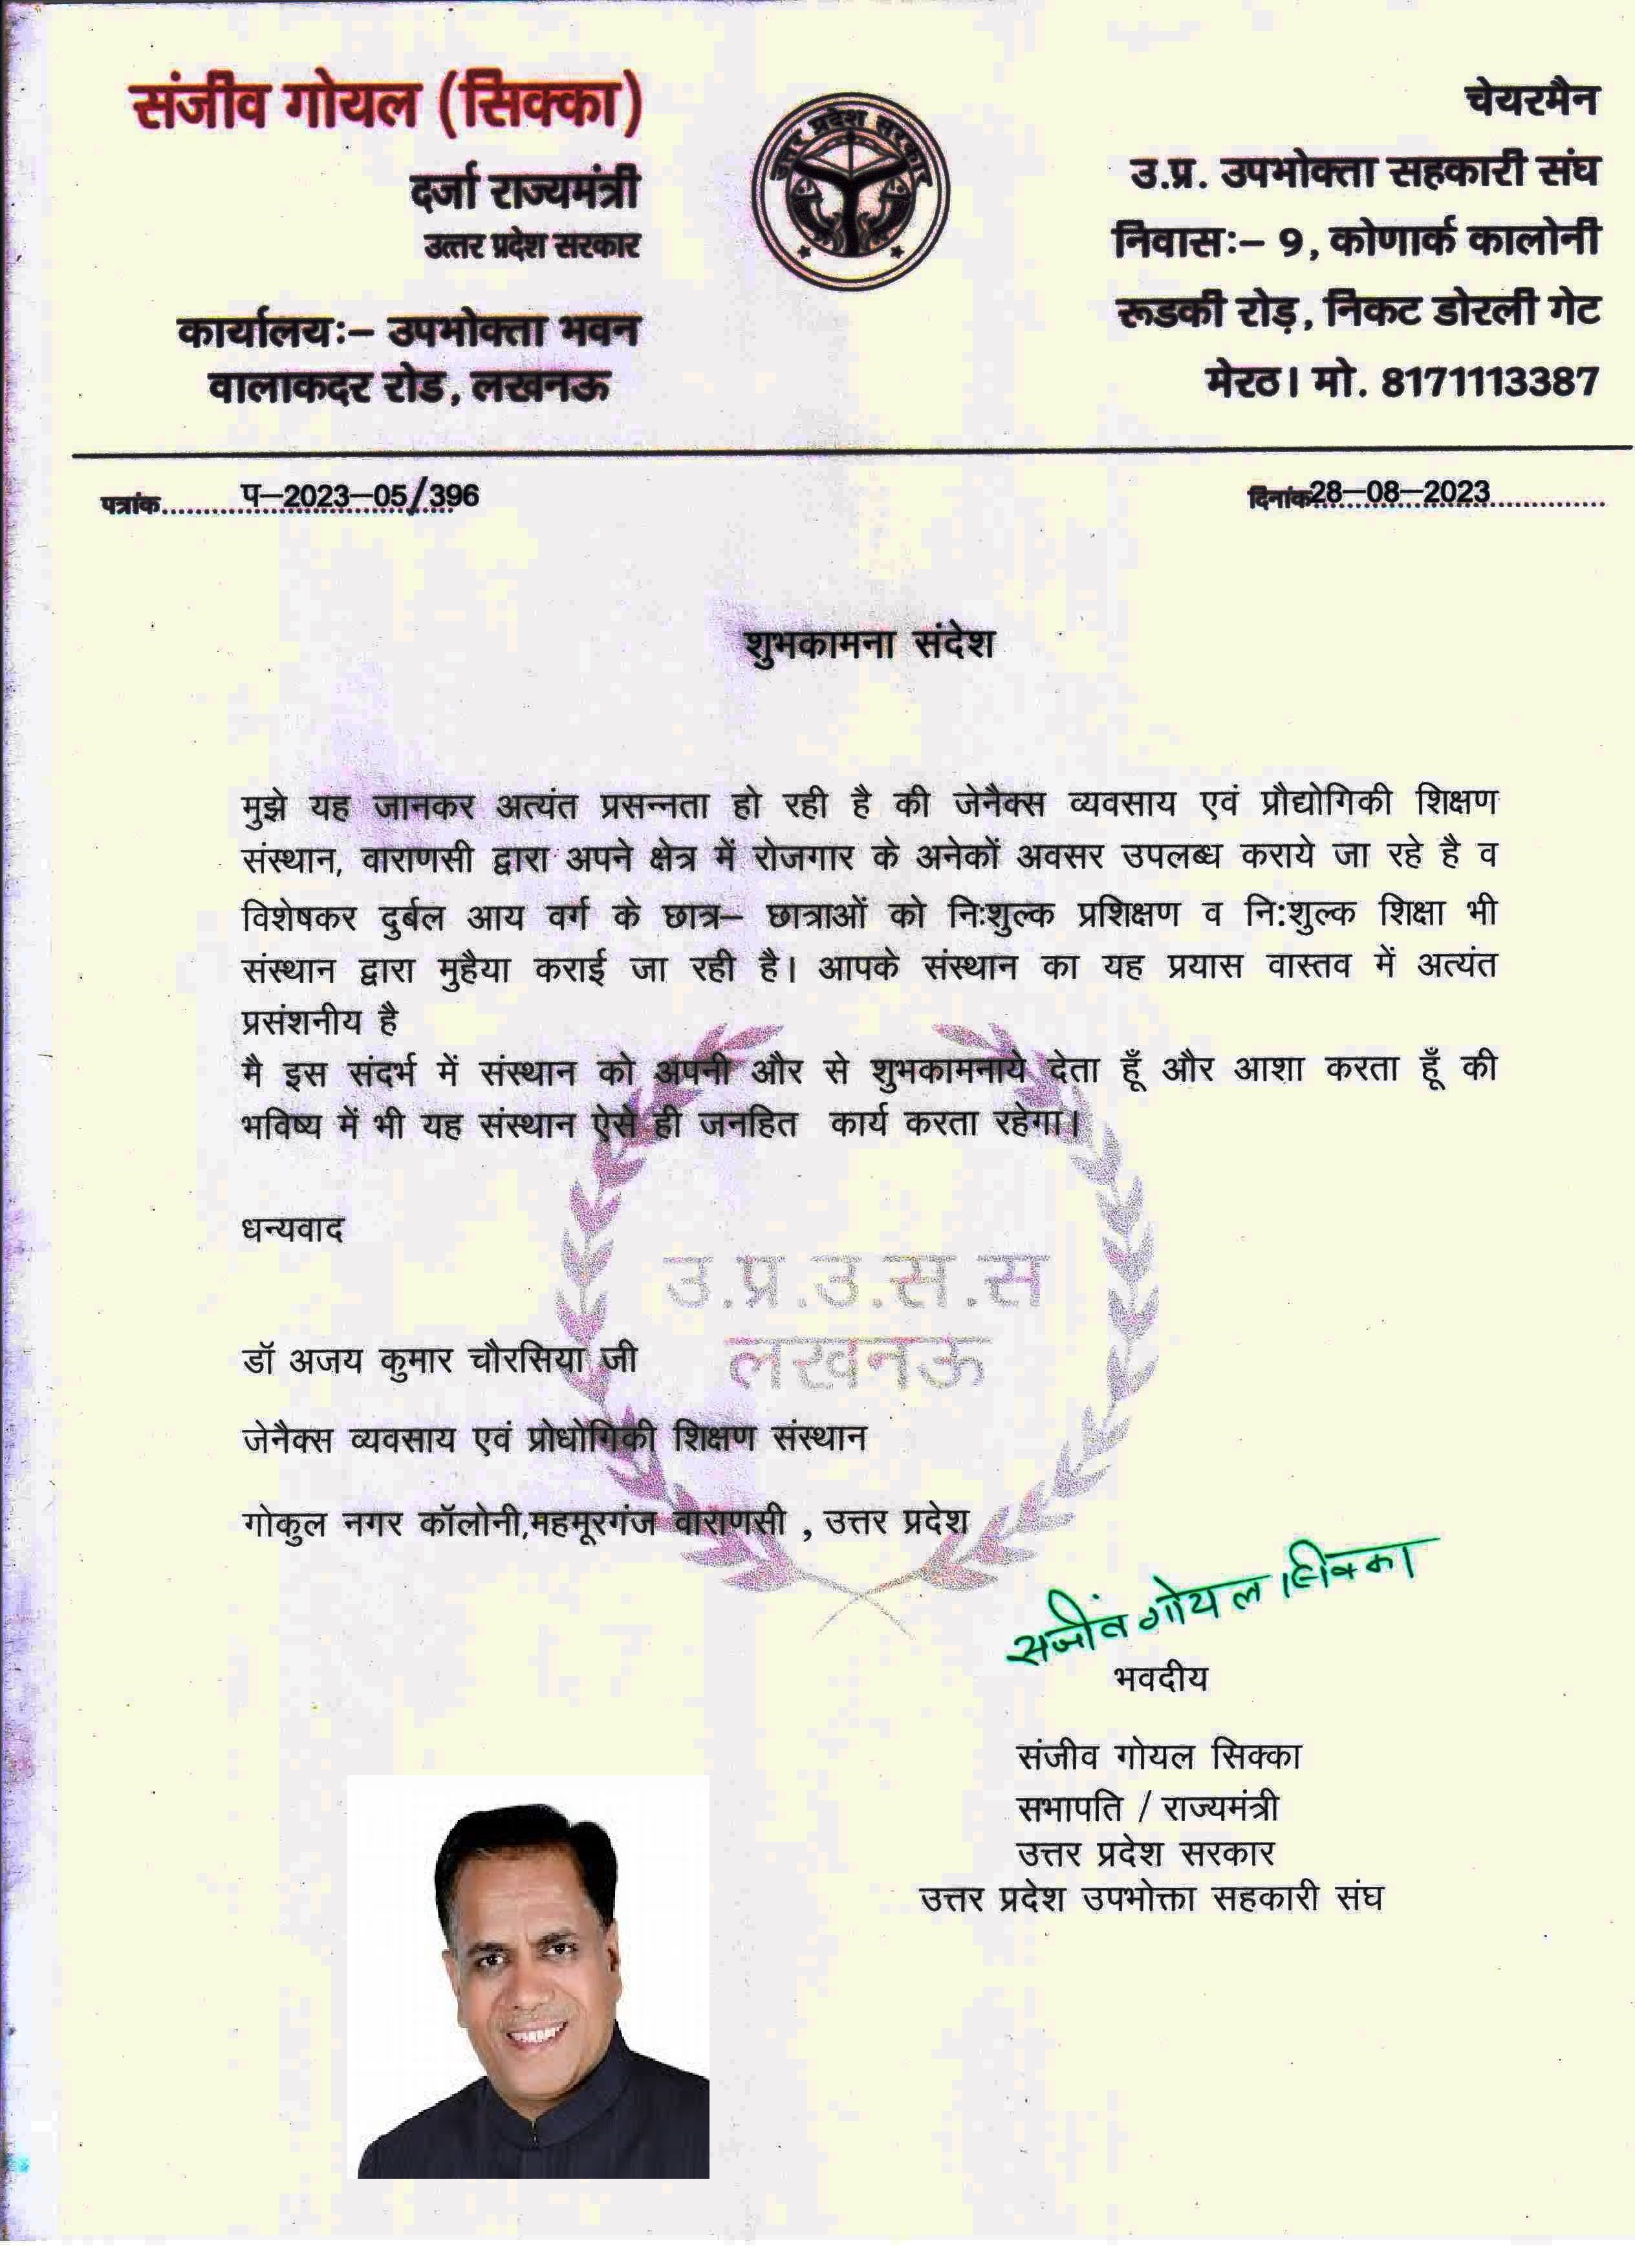 संजीव गोयल (सिक्का)
दर्जा राज्यमंत्री
उत्तर प्रदेश सरकार
कार्यालयः– उपभोक्ता भवन
वालाकदर रोड, लखनऊ
उत्तर प्रदेश सरकार
चेयरमैन
उ.प्र. उपभोक्ता सहकारी संघ
निवासः– 9, कोणार्क कालोनी
रूडकी रोड़, निकट डोरली गेट
मेरठ। मो. 8171113387
पत्रांक.......... प–2023–05/396
दिनांक 28–08–2023..............
शुभकामना संदेश
मुझे यह जानकर अत्यंत प्रसन्नता हो रही है की जेनैक्स व्यवसाय एवं प्रौद्योगिकी शिक्षण
संस्थान, वाराणसी द्वारा अपने क्षेत्र में रोजगार के अनेकों अवसर उपलब्ध कराये जा रहे है व
विशेषकर दुर्बल आय वर्ग के छात्र– छात्राओं को नि:शुल्क प्रशिक्षण व नि:शुल्क शिक्षा भी
संस्थान द्वारा मुहैया कराई जा रही है। आपके संस्थान का यह प्रयास वास्तव में अत्यंत
प्रसंशनीय है
मै इस संदर्भ में संस्थान को अपनी और से शुभकामनाये देता हूँ और आशा करता हूँ की
भविष्य में भी यह संस्थान ऐसे ही जनहित कार्य करता रहेगा।
धन्यवाद
उ.प्र.उ.स.स
लखनऊ
डॉ अजय कुमार चौरसिया जी
जेनैक्स व्यवसाय एवं प्रोधोगिकी शिक्षण संस्थान
गोकुल नगर कॉलोनी,महमूरगंज वाराणसी , उत्तर प्रदेश
संजीव गोयल सिक्का
भवदीय
संजीव गोयल सिक्का
सभापति / राज्यमंत्री
उत्तर प्रदेश सरकार
उत्तर प्रदेश उपभोक्ता सहकारी संघ